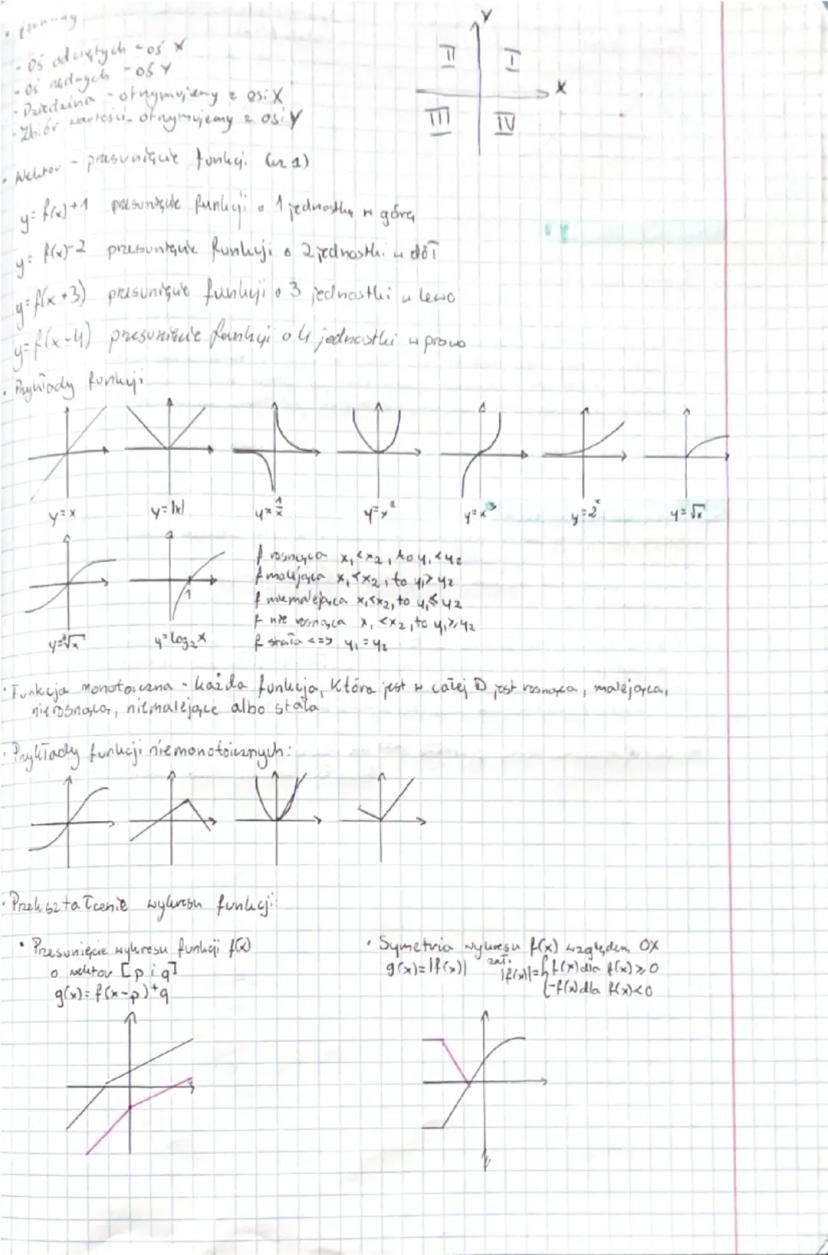 - Oś odciętych - oś X
- Oś rzędnych - oś Y
- Dziedzina - otrzymujemy z osi X
- Zbiór wartości - otrzymujemy z osi Y
Y
II I
X
III IV
• Wektor - przesunięcie funkcji (nr 1)
y = f(x)+1 przesunięcie funkcji o 1 jednostkę w górę
y = f(x)-2 przesunięcie funkcji o 2 jednostki w dół
y = f(x+3) przesunięcie funkcji o 3 jednostki w lewo
y = f(x-4) przesunięcie funkcji o 4 jednostki w prawo
• Przykłady funkcji
y=x y=|x| y=1/x y=x² y=x³ y=2ˣ y=√x
f rosnąca x₁<x₂, to y₁<y₂
f malejąca x₁<x₂, to y₁>y₂
f niemalejąca x₁<x₂, to y₁≤y₂
f nie rosnąca x₁<x₂, to y₁≥y₂
f stała <=> y₁=y₂
1
y=∛x y=log₂x
• Funkcja monotoiczna - każda funkcja, która jest w całej D jest rosnąca, malejąca,
nierosnąca, niemalejące albo stała
• Przykłady funkcji niemonotoicznych:
• Przekształcenie wykresu funkcji:
• Przesunięcie wykresu funkcji f(x)
o wektor [p i q]
g(x)=f(x-p)+q
• Symetria wykresu f(x) względem OX
g(x)=|f(x)| zał. |f(x)|={f(x) dla f(x)≥0
{-f(x) dla f(x)<0